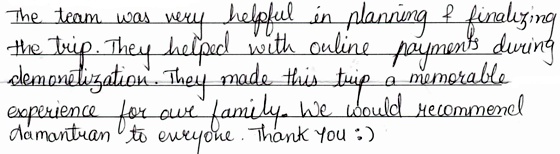 The team was very helpful in planning & finalizing
the trip. They helped with online payments during
demonetization. They made this trip a memorable
experience for our family. We would recommend
damantran to everyone. Thank You :)